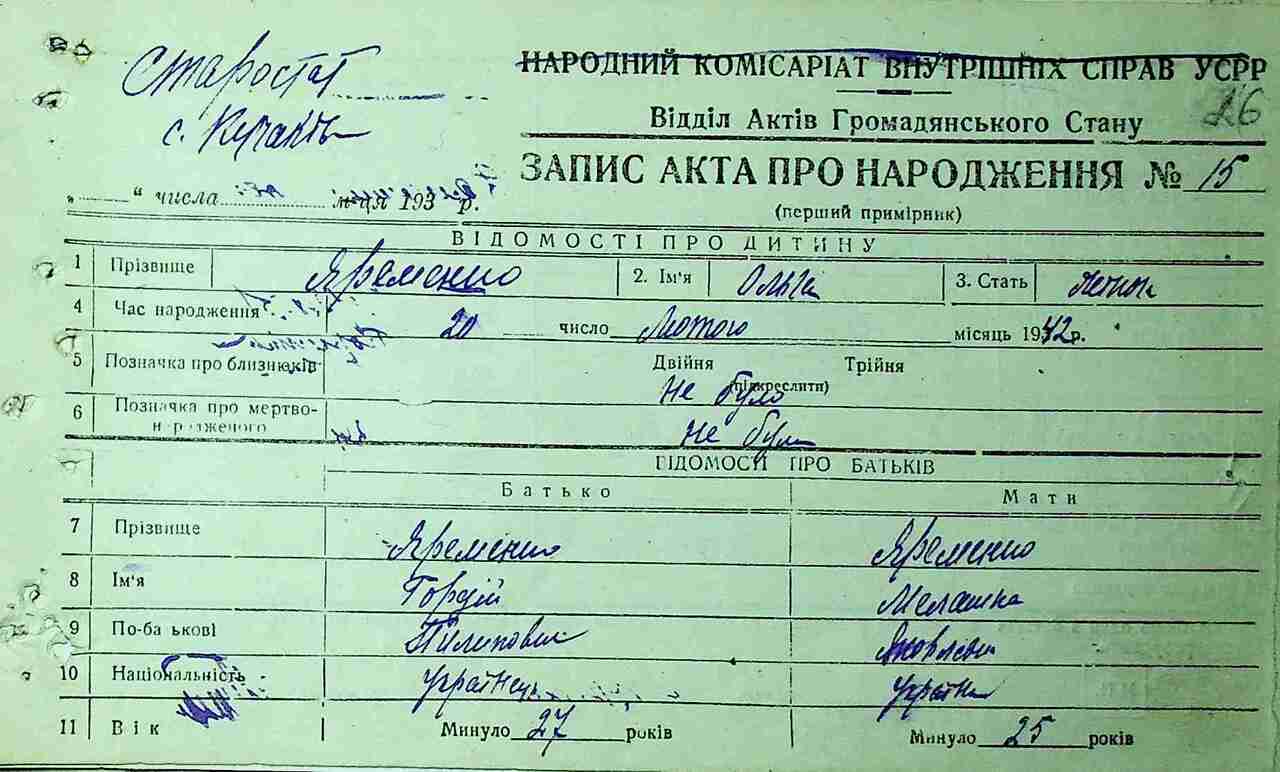 Старостат
с. Кучаків
НАРОДНИЙ КОМІСАРІАТ ВНУТРІШНІХ СПРАВ УСРР
26
Відділ Актів Громадянського Стану
ЗАПИС АКТА ПРО НАРОДЖЕННЯ № 15
„ “ числа м-ця 193 р.
(перший примірник)
ВІДОМОСТІ ПРО ДИТИНУ
1 Прізвище Яременко 2. Ім'я Ольга 3. Стать
4 Час народження 20 число Лютого місяць 1942 р.
5 Позначка про близнюків Двійня Трійня
(підкреслити)
Не було
6 Позначка про мертво-
н родженого Не було
ВІДОМОСТІ ПРО БАТЬКІВ
Батько Мати
7 Прізвище Яременко Яременко
8 Ім'я Гордій Мелашка
9 По-ба ькові Пилипович Яковлівна
10 Національність Українець Українка
11 Вік Минуло 27 років Минуло 25 років